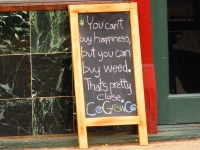 You can't
buy happiness,
but you can
buy weed.
That's pretty
Close.